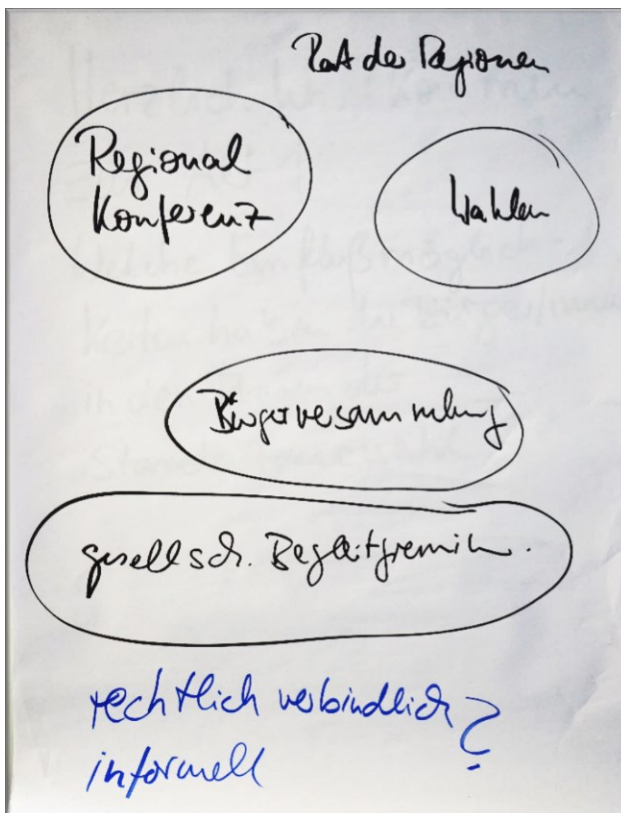 Rat der Regionen
Regional
Konferenz
Wahlen
Bürgerversammlung
gesellsch. Begleitgremium.
rechtlich verbindlich ?
informell